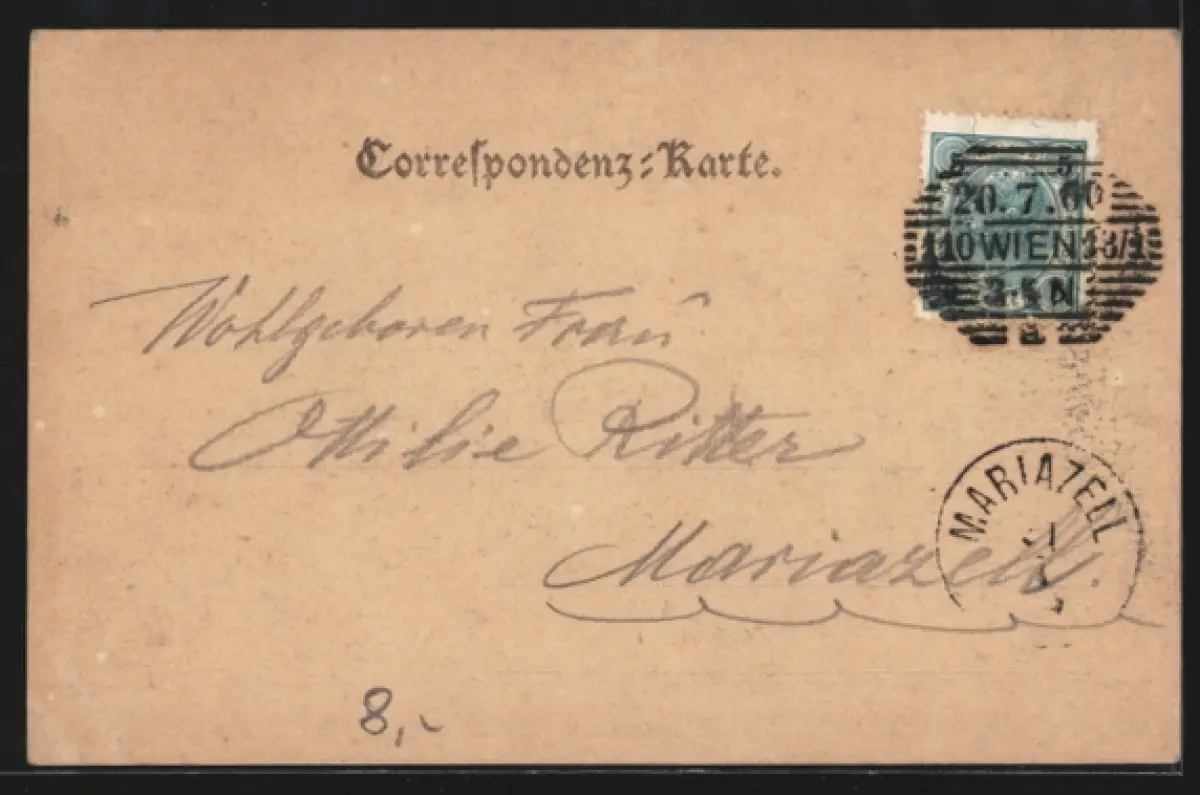 Correspondenz-Karte.
5 5
20.7.00
WIEN
3-5 N
Wohlgeboren Frau
Ottilie Ritter
MARIAZELL
Mariazell.
8,-